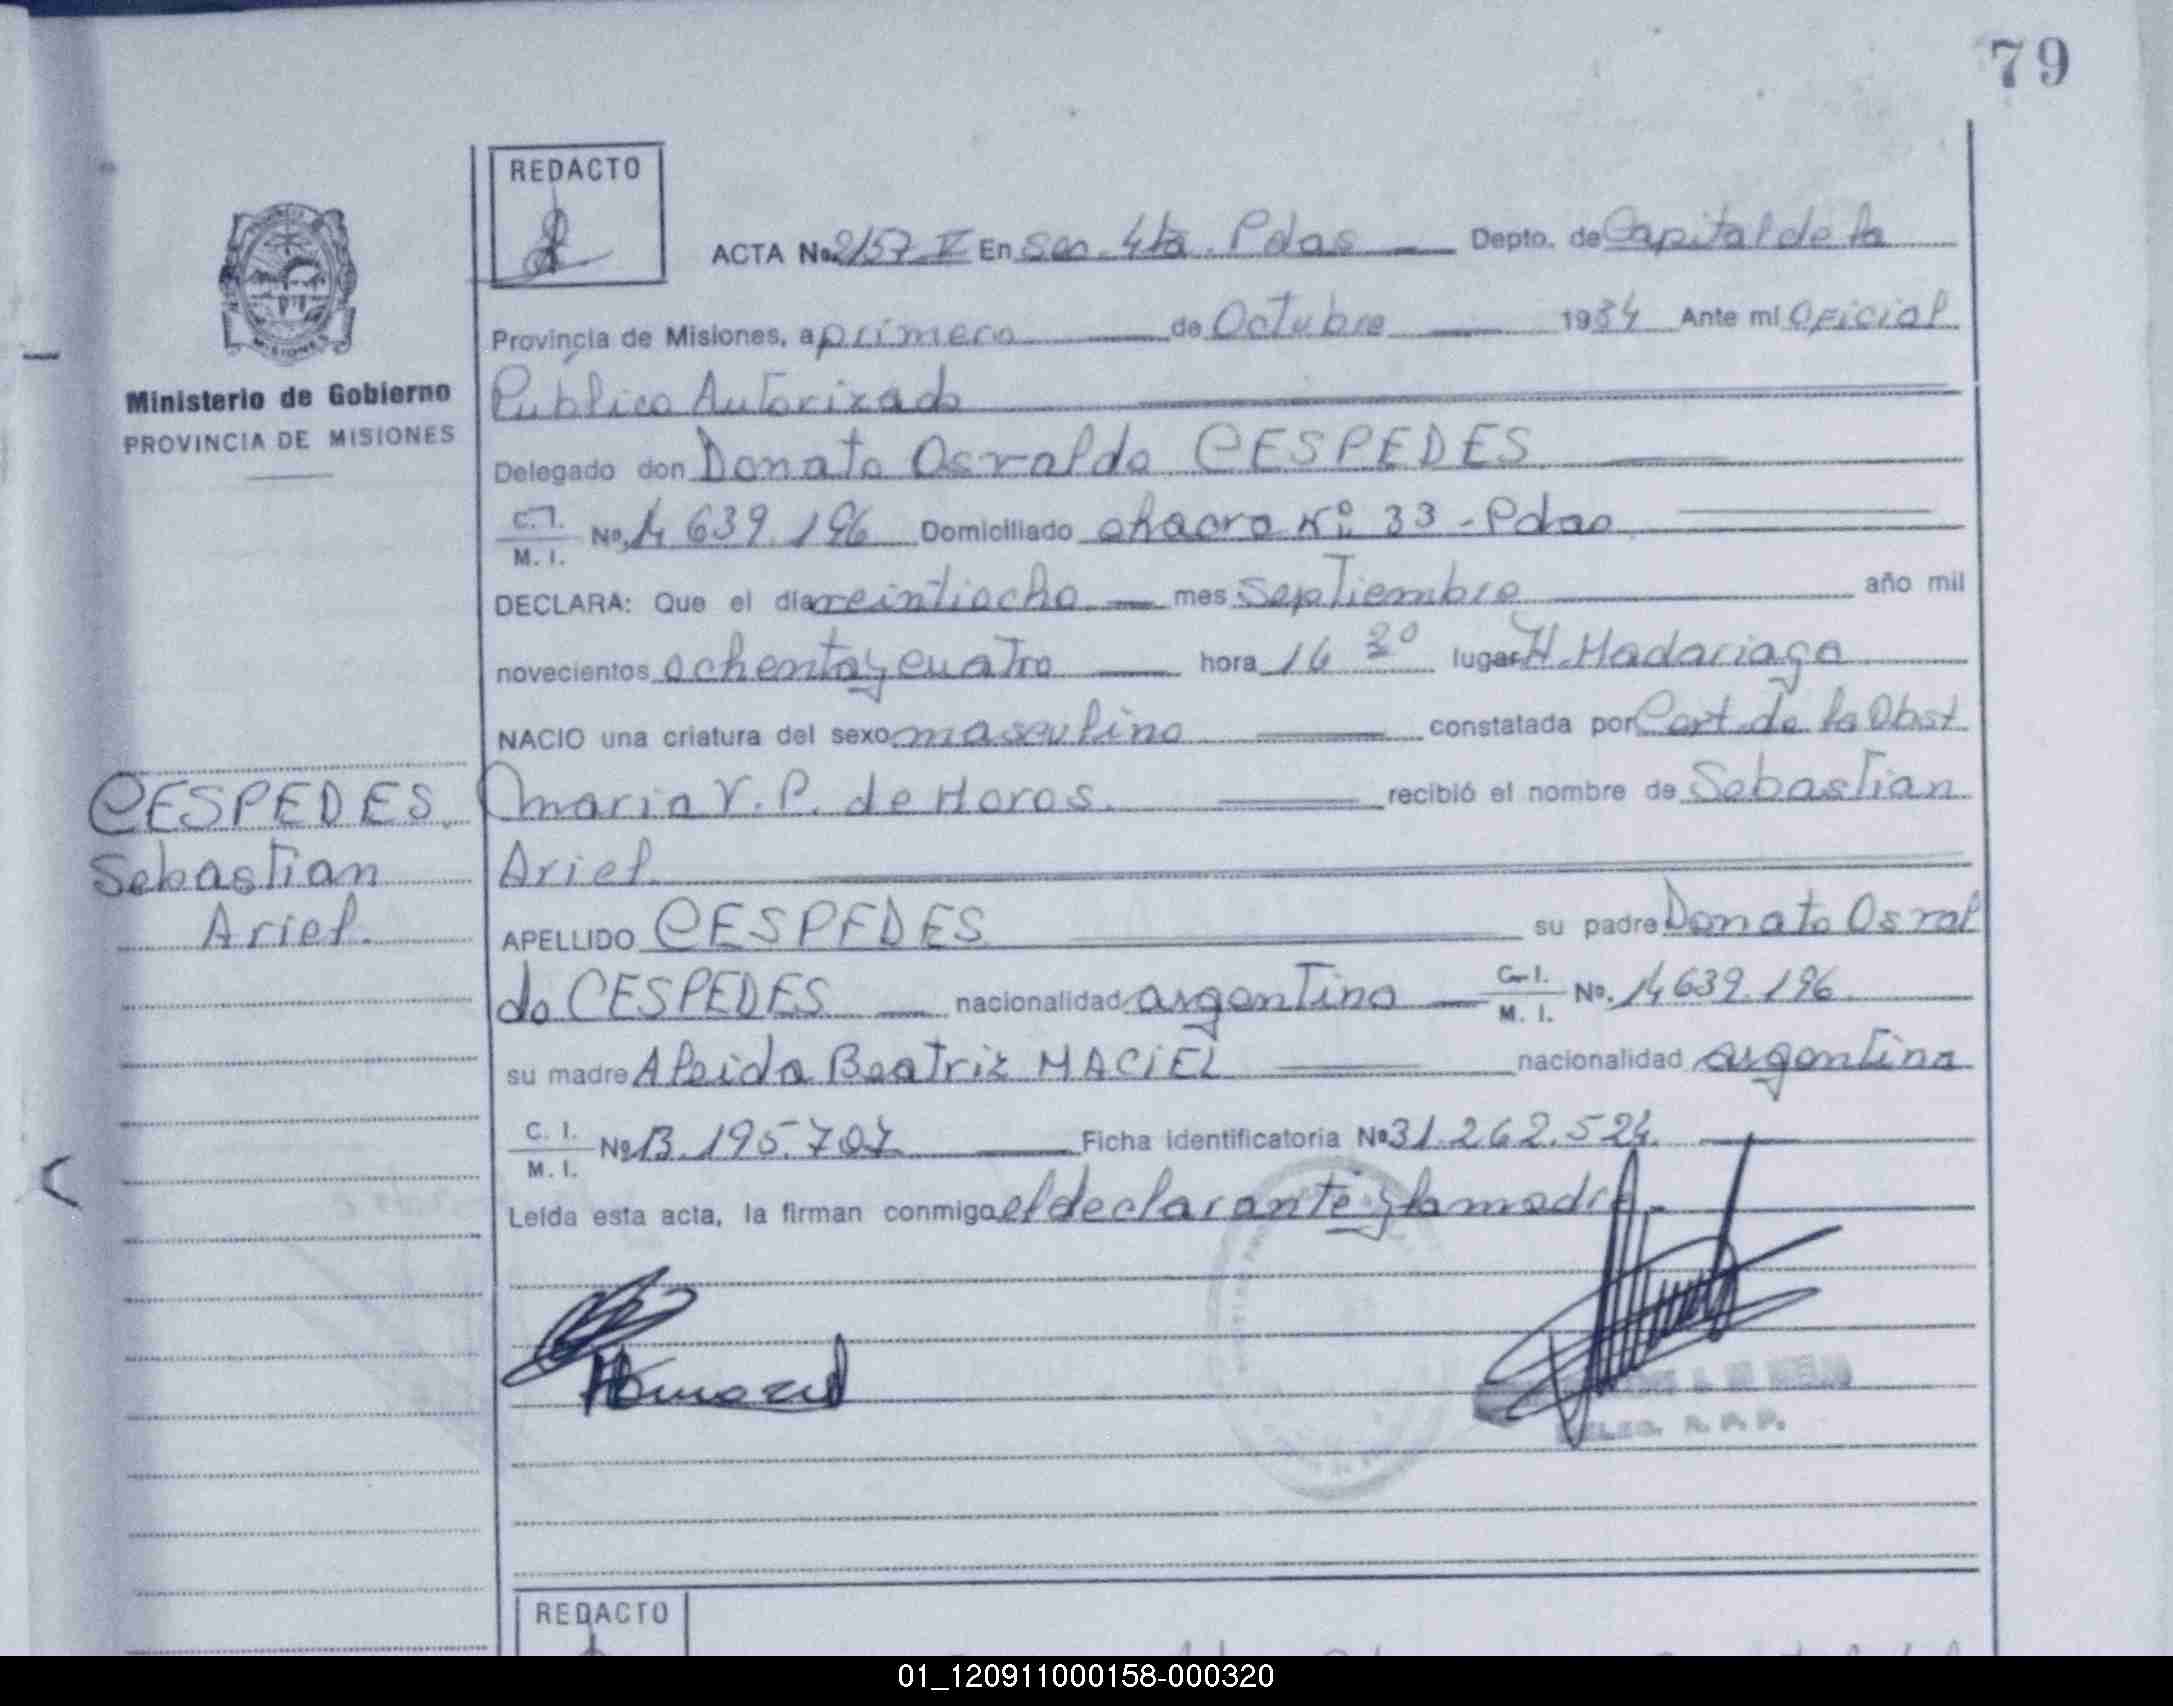 79
REDACTO
ACTA No. 2157 V En Sec. 4ta. Pdas Depto. de Capital de la
Provincia de Misiones, a primero de Octubre 1984 Ante mi Oficial
Público Autorizado
Ministerio de Gobierno
PROVINCIA DE MISIONES
Delegado don Donato Osvaldo CESPEDES
C.I. M. I. No. 14 639.196 Domiciliado chacra Nº 33 - Pdas
DECLARA: Que el día veintiocho mes Septiembre año mil
novecientos ochenta y cuatro hora 16 30 lugar H. Madariaga
NACIO una criatura del sexo masculino constatada por Cert. de la Obst
Maria V. P. de Horos. recibió el nombre de Sebastian
Ariel
CESPEDES.
Sebastian
Ariel.
APELLIDO CESPEDES su padre Donato Osval
do CESPEDES nacionalidad argentino C.I. M. I. No. 14 639.196
su madre Aleida Beatriz MACIEL nacionalidad argentina
C. I. M. I. No 13.195.707 Ficha identificatoria No 31.262.524.
Leída esta acta, la firman conmigo el declarante y la madre.-
R. P. P.
REDACTO
01_120911000158-000320